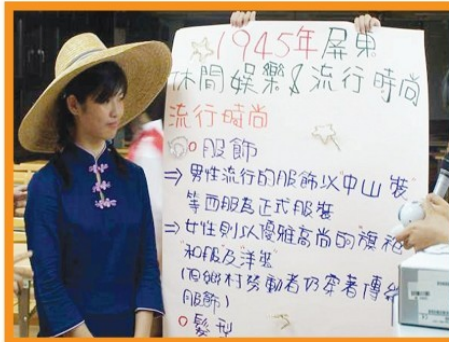 1945年屏東
休閒娛樂&流行時尚
流行時尚
服飾
⇒男性流行的服飾以"中山裝"
等西服為正式服裝
⇒女性則以優雅高尚的"旗袍"
和服及"洋裝"
(但鄉村勞動者仍穿著傳統
服飾)
髮型